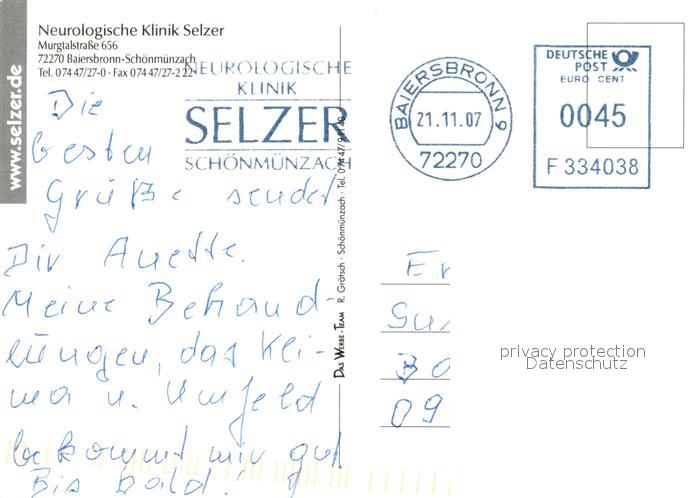 www.selzer.de
Neurologische Klinik Selzer
Murgtalstraße 656
72270 Baiersbronn-Schönmünzach
Tel. 0 74 47/27-0 · Fax 0 74 47/27-2 22
NEUROLOGISCHE
KLINIK
SELZER
SCHÖNMÜNZACH
BAIERSBRONN 9
21.11.07
72270
DEUTSCHE
POST
EURO CENT
0045
F 334038
Die
besten
Grüße sendet
Dir Anette.
Meine Behand-
lungen, das Kli-
ma u. Umfeld
bekommt mir gut
Bis bald!
DAS WERBE-TEAM R. Grötsch · Schönmünzach · Tel.
Er
Gu
Bo
09
privacy protection
Datenschutz